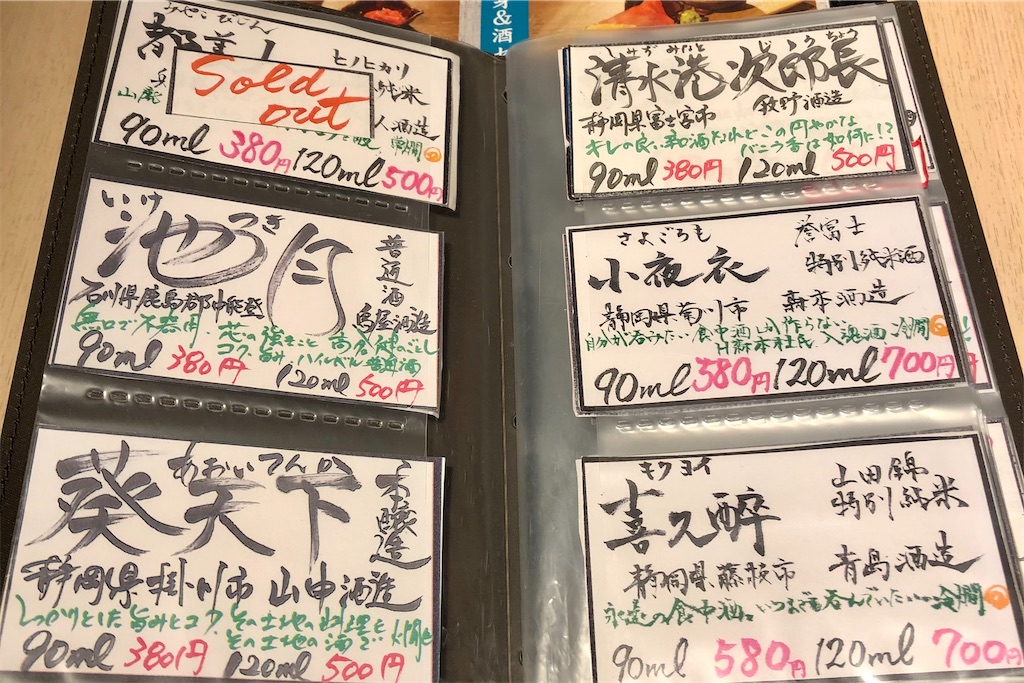 身&酒
みやこびじん
都美人
ヒノヒカリ
Sold out
純米
山廃
人酒造
冷燗
90ml 380円 120ml 500円
いけづき
池月
普通酒
石川県鹿島郡中能登
鳥屋酒造
無口で不器用、芯の強さこと高倉健のごとし
コク、旨み、ハイレベル普通酒
90ml 380円 120ml 500円
あおいてんか
葵天下
本醸造
静岡県掛川市 山中酒造
しっかりとした旨みとコク、その土地の料理を
その土地の酒で!
90ml 380円 120ml 500円
しみずみなと じろちょう
清水港 次郎長
静岡県富士宮市 牧野酒造
キレの良い辛口酒なれどこの円やかな
バニラ香は如何に!?
90ml 380円 120ml 500円
さよごろも
小夜衣
誉富士
特別純米酒
静岡県菊川市 森本酒造
自分が呑みたい食中酒しか作らない
森本社長 入魂酒 冷燗
90ml 580円 120ml 700円
キクヨイ
喜久酔
山田錦
特別純米
静岡県藤枝市 青島酒造
永遠の食中酒。いつまでも呑んでいたい… 冷燗
90ml 580円 120ml 700円